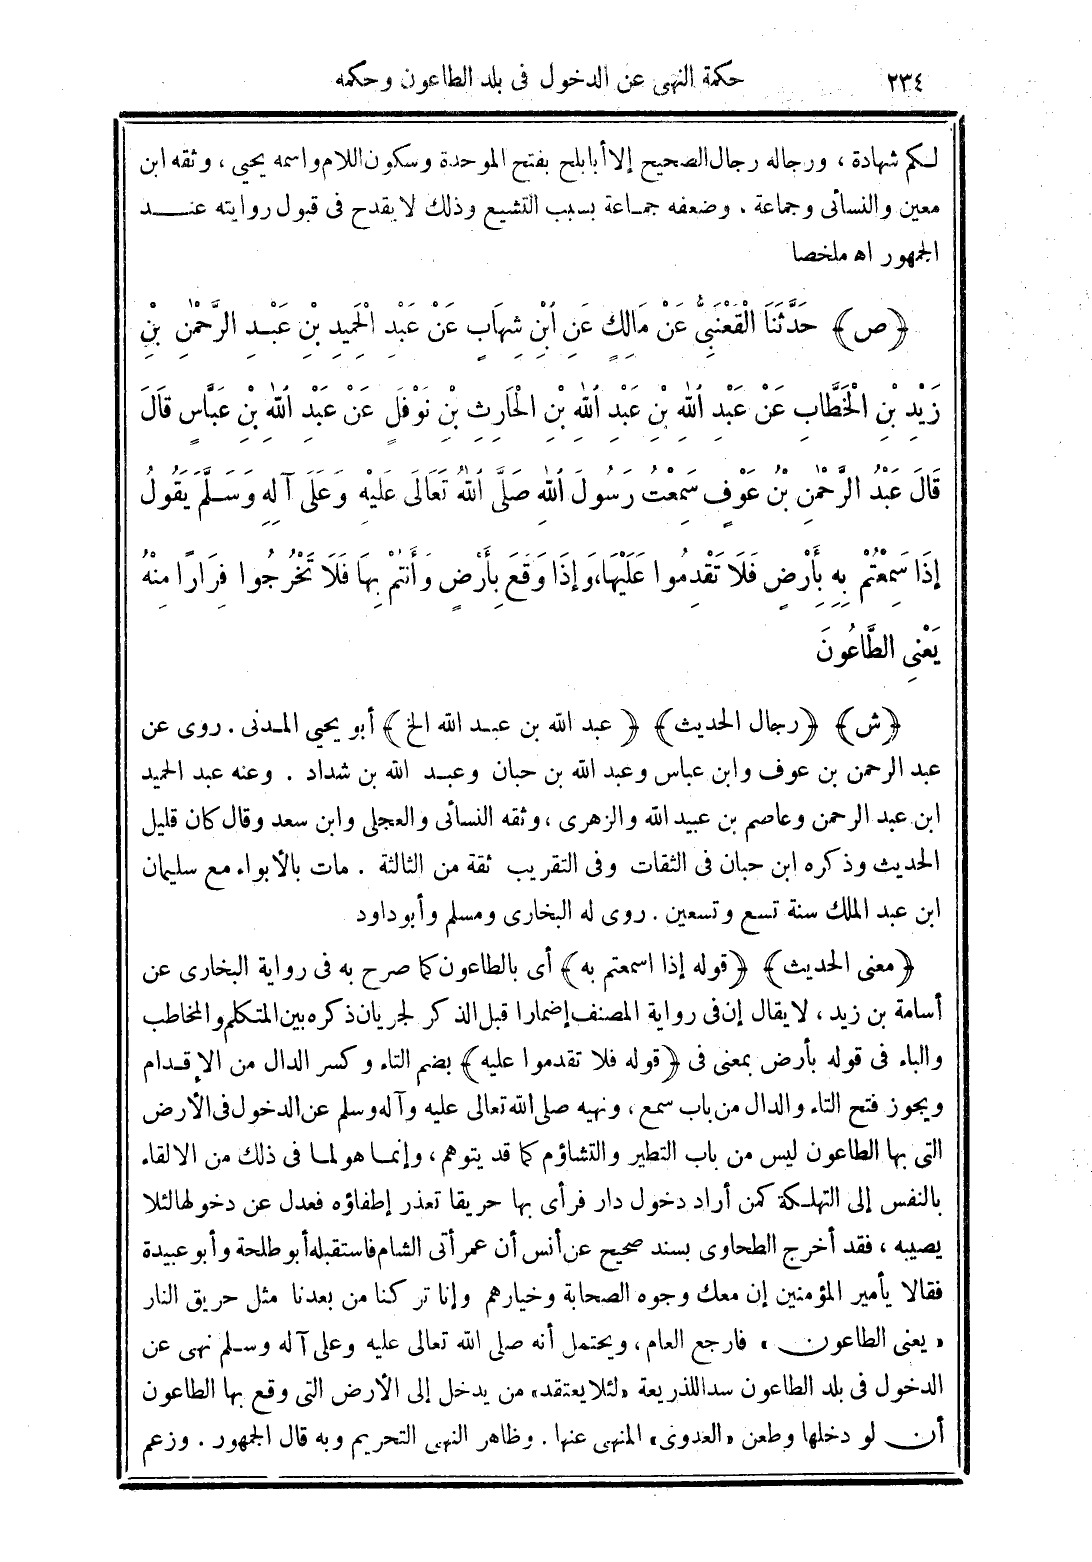 ٢٣٤
حكمة النهى عن الدخول فى بلد الطاعون وحكمه
لكم شهادة ، ورجاله رجال الصحيح إلا أبا بلج بفتح الموحدة وسكون اللام واسمه يحيى ، وثقه ابن
معين والنسائى وجماعة . وضعفه جماعة بسبب التشيع وذلك لا يقدح فى قبول روايته عند
الجمهور اه ملخصا
﴿ص﴾ حَدَّثَنَا الْقَعْنَبِىُّ عَنْ مَالِكٍ عَنِ ابْنِ شِهَابٍ عَنْ عَبْدِ الْحَمِيدِ بْنِ عَبْدِ الرَّحْمٰنِ بْنِ
زَيْدِ بْنِ الْخَطَّابِ عَنْ عَبْدِ اللهِ بْنِ عَبْدِ اللهِ بْنِ الْحَارِثِ بْنِ نَوْفَلٍ عَنْ عَبْدِ اللهِ بْنِ عَبَّاسٍ قَالَ
قَالَ عَبْدُ الرَّحْمٰنِ بْنُ عَوْفٍ سَمِعْتُ رَسُولَ اللهِ صَلَّى اللهُ تَعَالَى عَلَيْهِ وَعَلَى آلِهِ وَسَلَّمَ يَقُولُ
إِذَا سَمِعْتُمْ بِهِ بِأَرْضٍ فَلَا تَقْدِمُوا عَلَيْهَا، وَإِذَا وَقَعَ بِأَرْضٍ وَأَنْتُمْ بِهَا فَلَا تَخْرُجُوا فِرَارًا مِنْهُ
يَعْنِى الطَّاعُونَ
﴿ش﴾ ﴿رجال الحديث﴾ ﴿عبد الله بن عبد الله الخ﴾ أبو يحيى المدنى . روى عن
عبد الرحمن بن عوف وابن عباس وعبد الله بن حبان وعبد الله بن شداد . وعنه عبد الحميد
ابن عبد الرحمن وعاصم بن عبيد الله والزهرى ، وثقه النسائى والعجلى وابن سعد وقال كان قليل
الحديث وذكره ابن حبان فى الثقات وفى التقريب ثقة من الثالثة . مات بالأبواء مع سليمان
ابن عبد الملك سنة تسع وتسعين . روى له البخارى ومسلم وأبوداود
﴿معنى الحديث﴾ ﴿قوله إذا اسمعتم به﴾ أى بالطاعون كما صرح به فى رواية البخارى عن
أسامة بن زيد ، لا يقال إن فى رواية المصنف إضمارا قبل الذكر لجريان ذكره بين المتكلم والمخاطب
والباء فى قوله بأرض بمعنى فى ﴿قوله فلا تقدموا عليه﴾ بضم التاء وكسر الدال من الإقدام
ويجوز فتح التاء والدال من باب سمع ، ونهيه صلى الله تعالى عليه وآله وسلم عن الدخول فى الأرض
التى بها الطاعون ليس من باب التطير والتشاؤم كما قد يتوهم ، وإنما هو لما فى ذلك من الالقاء
بالنفس إلى التهلكة كمن أراد دخول دار فرأى بها حريقا تعذر إطفاؤه فعدل عن دخولها لئلا
يصيبه ، فقد أخرج الطحاوى بسند صحيح عن أنس أن عمر أتى الشام فاستقبله أبو طلحة وأبو عبيدة
فقالا يأمير المؤمنين إن معك وجوه الصحابة وخيارهم وإنا تركنا من بعدنا مثل حريق النار
« يعنى الطاعون » فارجع العام ، ويحتمل أنه صلى الله تعالى عليه وعلى آله وسلم نهى عن
الدخول فى بلد الطاعون سدا للذريعة «لئلا يعتقد» من يدخل إلى الأرض التى وقع بها الطاعون
أن لو دخلها وطعن «العدوى» المنهى عنها . وظاهر النهى التحريم وبه قال الجمهور . وزعم